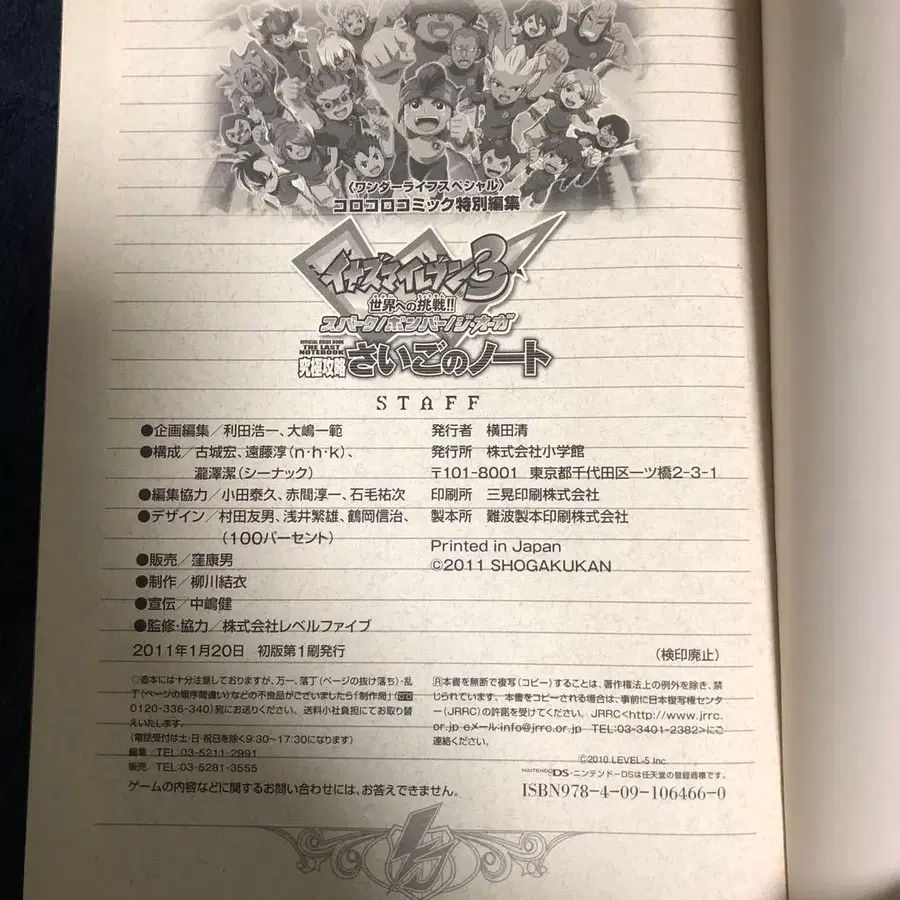 〈ワンダーライフスペシャル〉
コロコロコミック特別編集
イナズマイレブン3
世界への挑戦!!
スパーク/ボンバー/ジ・オーガ
OFFICIAL GUIDE BOOK
THE LAST
NOTEBOOK
究極攻略
さいごのノート
STAFF
●企画編集／利田浩一、大嶋一範
●構成／古城宏、遠藤淳（n・h・k）、
瀧澤潔（シーナック）
●編集協力／小田泰久、赤間淳一、石毛祐次
●デザイン／村田友男、浅井繁雄、鶴岡信治、
（100パーセント）
●販売／窪康男
●制作／柳川結衣
●宣伝／中嶋健
●監修・協力／株式会社レベルファイブ
2011年1月20日　初版第1刷発行
発行者　横田清
発行所　株式会社小学館
〒101-8001　東京都千代田区一ツ橋2-3-1
印刷所　三晃印刷株式会社
製本所　難波製本印刷株式会社
Printed in Japan
©2011 SHOGAKUKAN
（検印廃止）
◇造本には十分注意しておりますが、万一、落丁（ページの抜け落ち）・乱
丁（ページの順序間違い）などの不良品がございましたら「制作局」（
0120-336-340）宛にお送りください。送料小社負担にてお取り替
えいたします。
（電話受付は土・日・祝日を除く9:30〜17:30になります）
編集／TEL:03-5211-2991
販売／TEL:03-5281-3555
ゲームの内容などに関するお問い合わせには、お答えできません。
Ⓡ本書を無断で複写（コピー）することは、著作権法上の例外を除き、禁
じられています。本書をコピーされる場合は、事前に日本複写権センタ
ー（JRRC）の許諾を受けてください。JRRC<http://www.jrrc.
or.jp eメール:info@jrrc.or.jp　TEL:03-3401-2382>にご
連絡ください。
©2010 LEVEL-5 Inc.
NINTENDO DS・ニンテンドーDSは任天堂の登録商標です。
ISBN978-4-09-106466-0